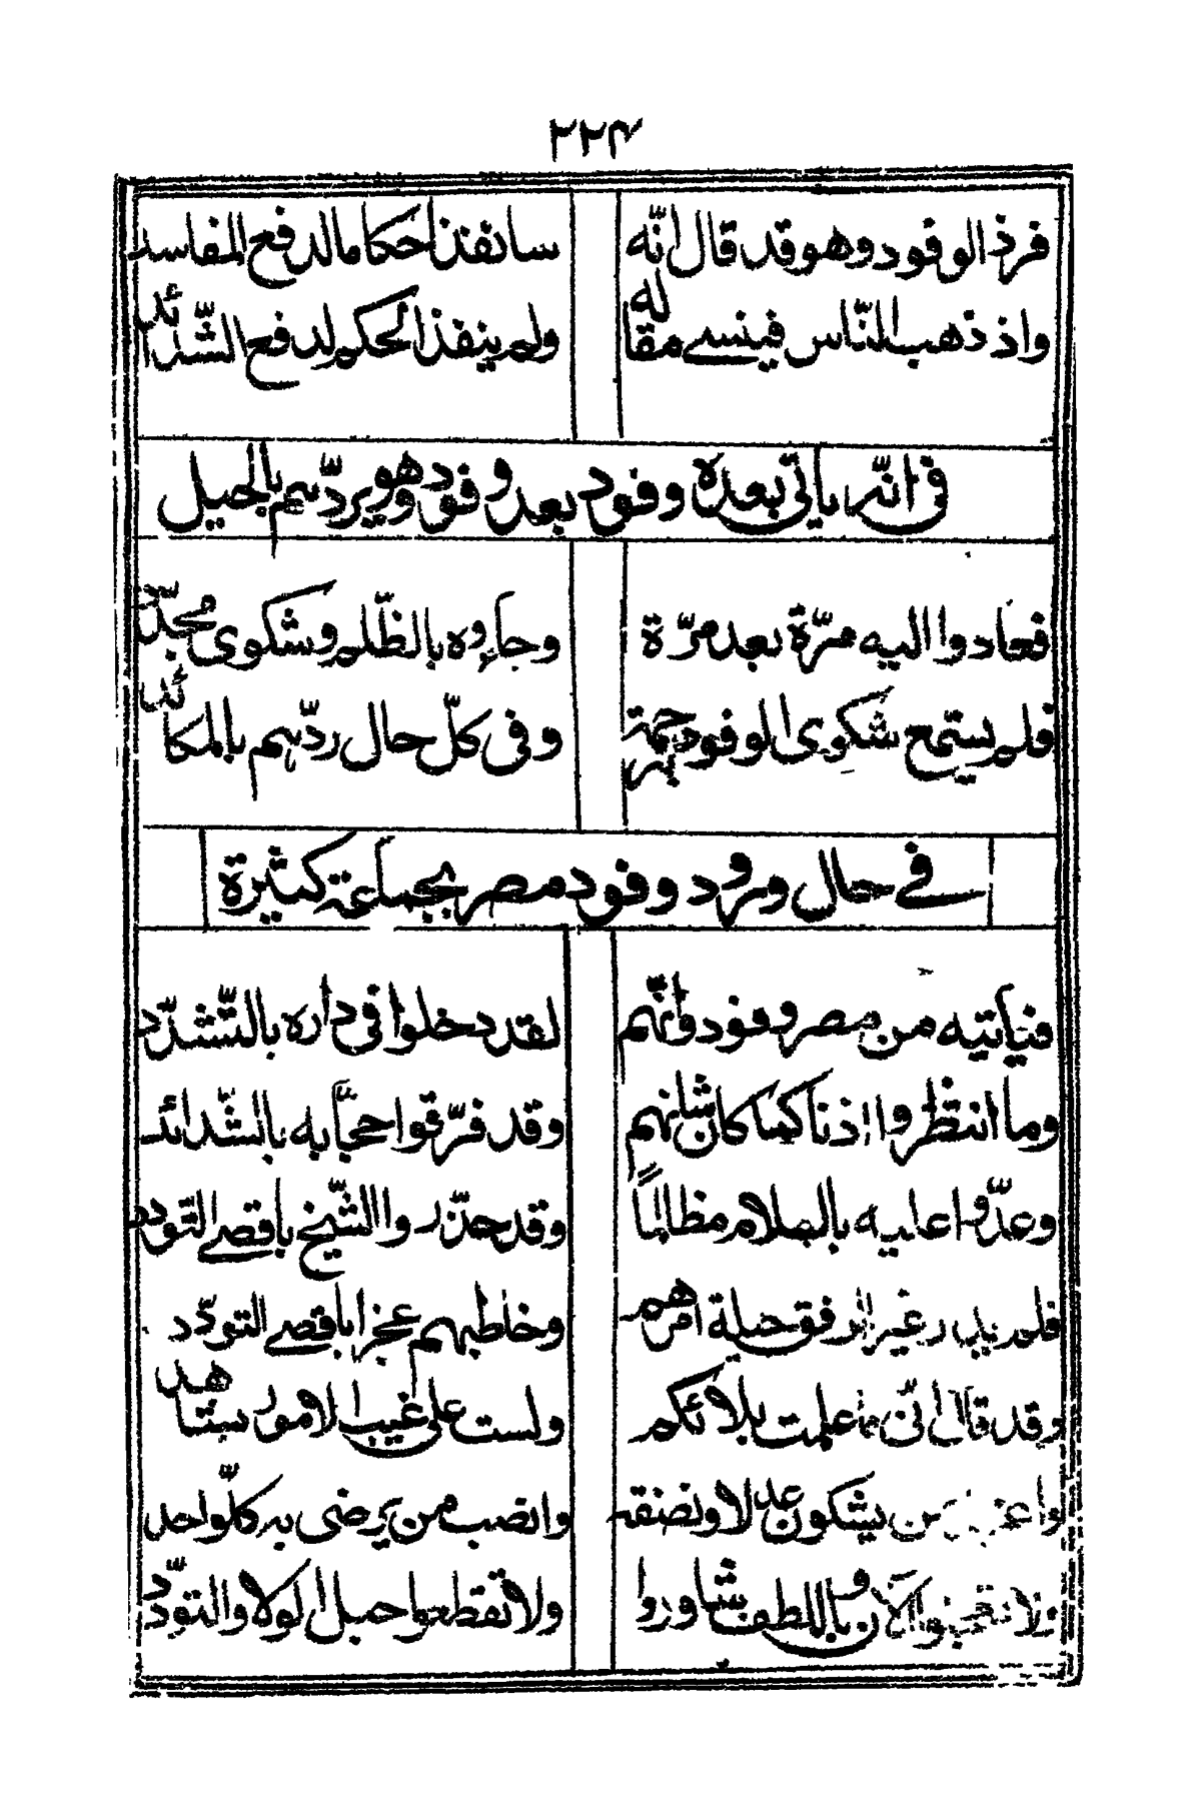 ٢٢٤
فردّ الوفود وهو قد قال انّه سانفذ احكاما لدفع المفاسد
واذ ذهب النّاس فينسى مقاله ولم ينفذ الحكم لدفع الشّدائد
فى انّه ياتى بعده وفود بعد وفود وهو يردّهم بالجميل
فعادوا اليه مرّة بعد مرّة وجاءوه بالظّلم وشكوى
فلم يستمع شكوى الوفود وفى كلّ حال ردّهم بالمكائد
فى حال ورود وفود مصر بجماعة كثيرة
فياتيه من مصر وفود وانّهم لقد دخلوا فى داره بالتّشدّد
وما انتظروا اذنا كما كان شانهم وقد فرّقوا حجّابه بالشّدائد
وعدّوا عليه بالسلام مظالماً وقد حذّروا الشّيخ باقصى التّودد
فلم ير غير الرفق حيلة امرهم وخاطبهم عجزا باقصى التودّد
وقد قال انّى ما علمت بلائكم ولست على غيب الامور بشاهد
من يشكون عدلا ونصفة وانصب من يرضى به كلّ واحد
باللطف شاوروا ولا تقطعوا حبل الولا والتودّد